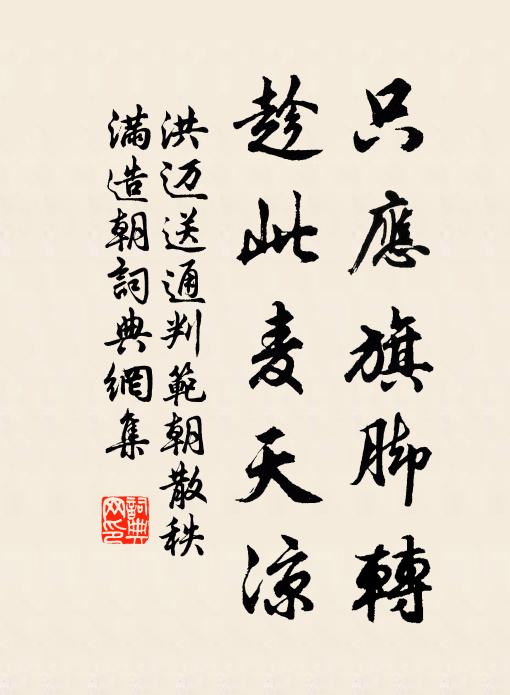 只應旗脚轉
趁此麦天涼
洪迈送通判範朝散秩
滿造朝詞典網集
詞典
网印